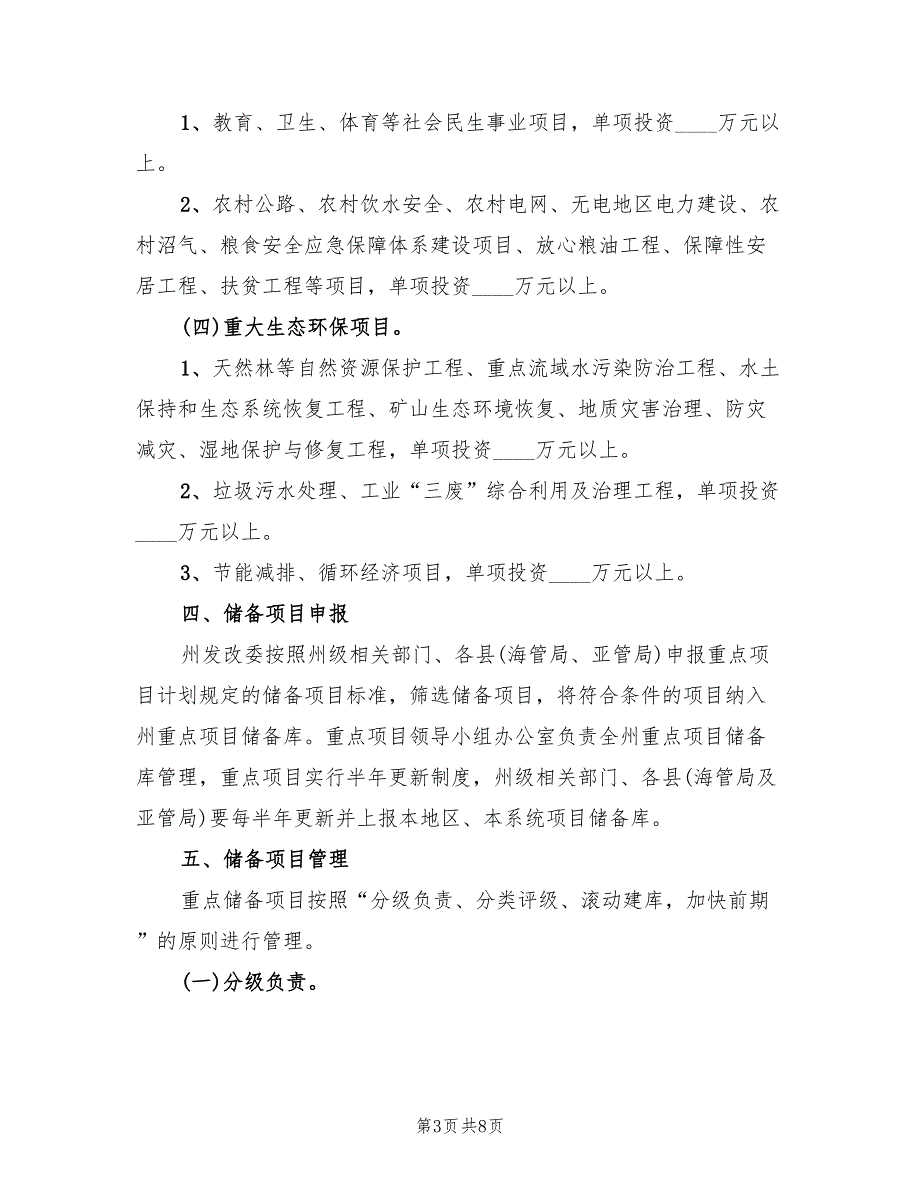 1、教育、卫生、体育等社会民生事业项目，单项投资____万元以
上。
2、农村公路、农村饮水安全、农村电网、无电地区电力建设、农
村沼气、粮食安全应急保障体系建设项目、放心粮油工程、保障性安
居工程、扶贫工程等项目，单项投资____万元以上。
(四)重大生态环保项目。
1、天然林等自然资源保护工程、重点流域水污染防治工程、水土
保持和生态系统恢复工程、矿山生态环境恢复、地质灾害治理、防灾
减灾、湿地保护与修复工程，单项投资____万元以上。
2、垃圾污水处理、工业“三废”综合利用及治理工程，单项投资
____万元以上。
3、节能减排、循环经济项目，单项投资____万元以上。
四、储备项目申报
州发改委按照州级相关部门、各县(海管局、亚管局)申报重点项
目计划规定的储备项目标准，筛选储备项目，将符合条件的项目纳入
州重点项目储备库。重点项目领导小组办公室负责全州重点项目储备
库管理，重点项目实行半年更新制度，州级相关部门、各县(海管局及
亚管局)要每半年更新并上报本地区、本系统项目储备库。
五、储备项目管理
重点储备项目按照“分级负责、分类评级、滚动建库，加快前期
”的原则进行管理。
(一)分级负责。
第3页 共8页